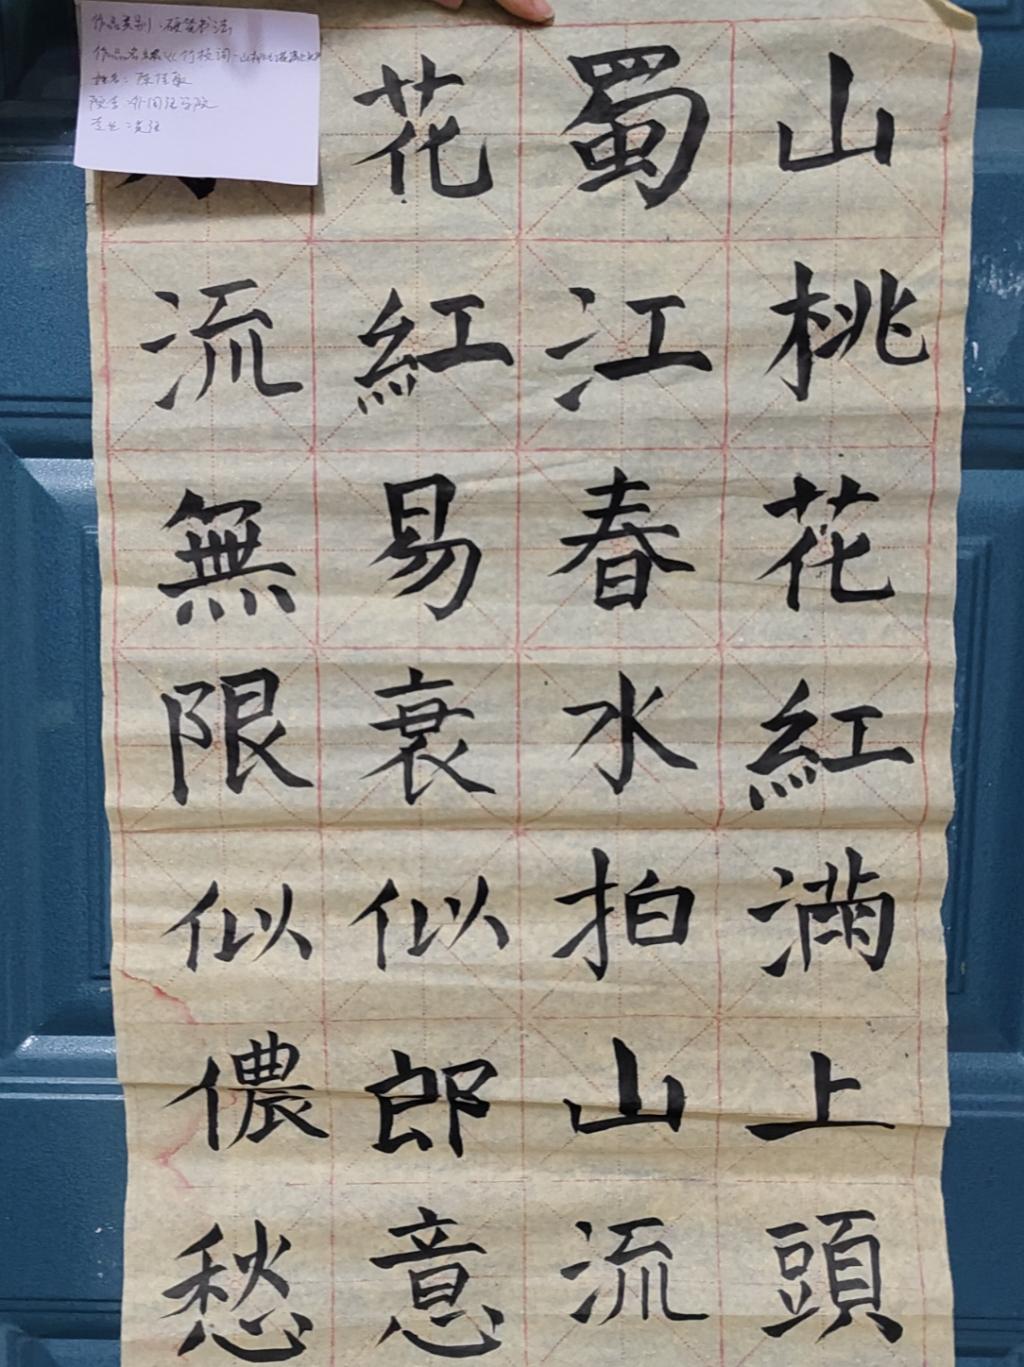 作品类别：硬笔书法
作品名称：《竹枝词·山桃红花满上头》
院含：外国语学院
山桃花紅滿上頭
蜀江春水拍山流
花紅易衰似郎意
流無限似儂愁